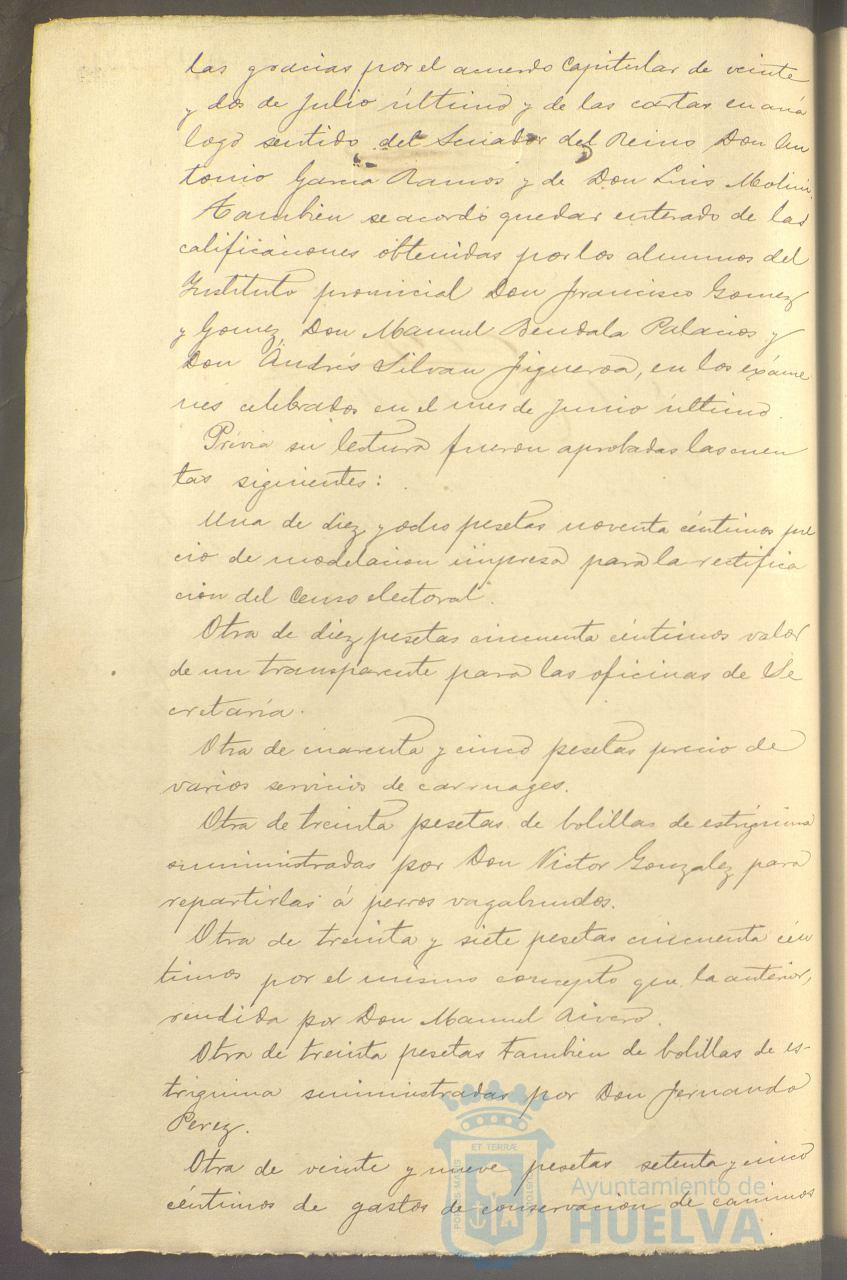 las gracias por el acuerdo Capitular de veinte
y dos de Julio último y de las cartas en aná
logo sentido del Senador del Reino Don An
tonio García Ramos y de Don Luis Molini.
Tambien se acordó quedar enterado de las
calificaciones obtenidas por los alumnos del
Instituto provincial Don Francisco Gomez
y Gomez, Don Manuel Bendala Palacios y
Don Andrés Silvan Figueroa, en los exáme
nes celebrados en el mes de Junio último.
Prévia su lectura fueron aprobadas las cuen
tas siguientes:
Una de diez y ocho pesetas noventa céntimos pre
cio de modelacion impresa para la rectifica
cion del Censo electoral.
Otra de diez pesetas cincuenta céntimos valor
de un transparente para las oficinas de Se
cretaría.
Otra de cuarenta y cinco pesetas precio de
varios servicios de carruages.
Otra de treinta pesetas de bolillas de estrignina
suministradas por Don Victor Gonzalez para
repartirlas á perros vagabundos.
Otra de treinta y siete pesetas cincuenta cén
timos por el mismo concepto que la anterior,
rendida por Don Manuel Rivero.
Otra de treinta pesetas tambien de bolillas de es-
trignina suministradas por Don Fernando
Perez.
Otra de veinte y nueve pesetas setenta y cinco
céntimos de gastos de conservacion de caminos
ET TERRÆ
PORTUS MARIS
CUSTODIA
Ayuntamiento de
HUELVA